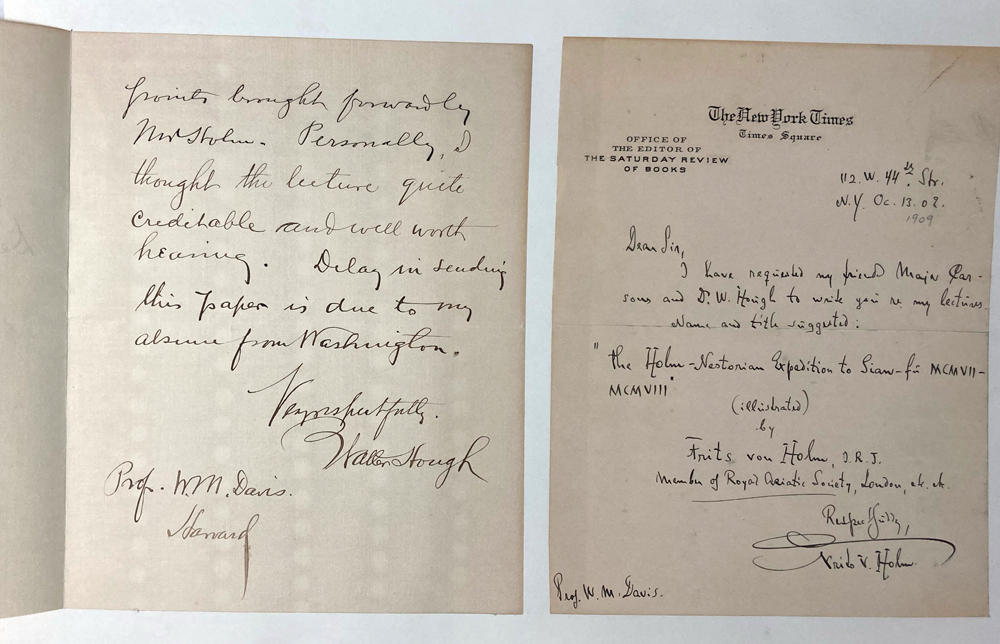 points brought forward by
Mr Holm. Personally, I
thought the lecture quite
creditable and well worth
hearing. Delay in sending
this paper is due to my
absence from Washington.
Very respectfully.
Walter Hough
Prof. W.M. Davis.
Harvard
The New York Times
Times Square
OFFICE OF
THE EDITOR OF
THE SATURDAY REVIEW
OF BOOKS
112. W. 44th Str.
N.Y. Oc. 13. 02.
1909
Dear Sir,
I have requested my friend Major Car-
sons and Dr. W. Hough to write you re my lectures.
Name and title suggested:
"The Holm-Nestorian Expedition to Sian-fu MCMVII-
MCMVIII"
(illustrated)
by
Frits von Holm,
Member of Royal Asiatic Society, London, etc. etc.
Respectfully,
Frits v. Holm.
Prof. W. M. Davis.